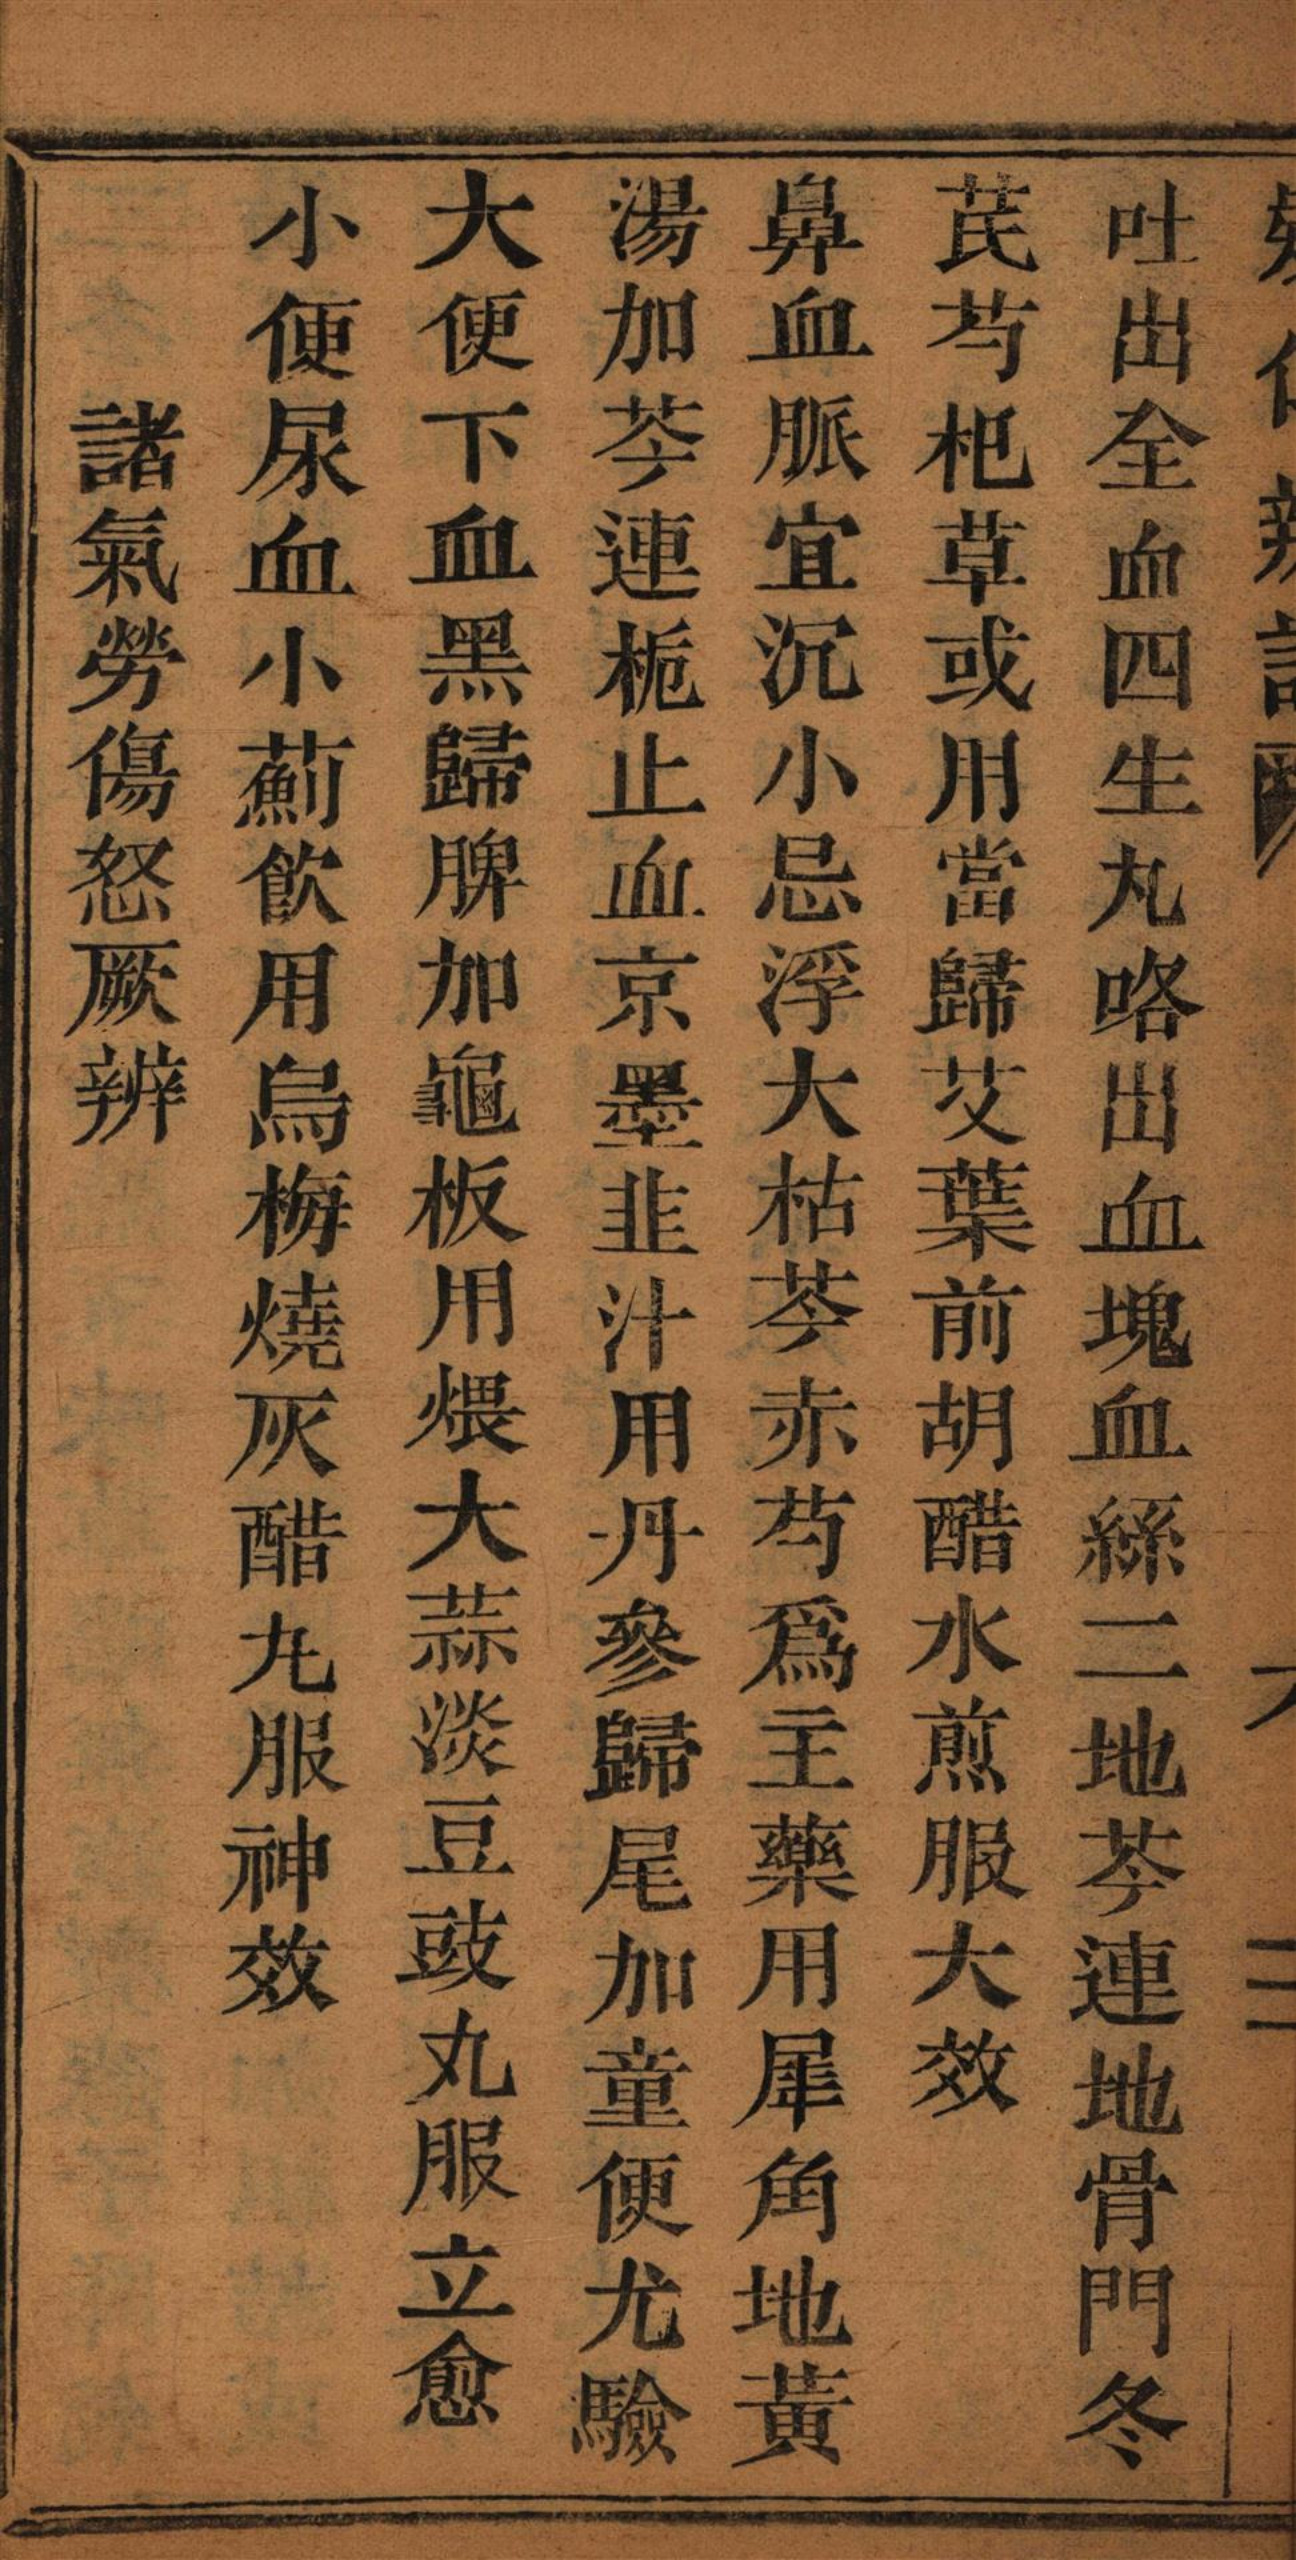 吐出全血四生丸咯出血塊血絲二地芩連地骨門冬
芪芍杷草或用當歸艾葉前胡醋水煎服大效
鼻血脈宜沉小忌浮大枯芩赤芍爲主藥用犀角地黃
湯加芩連梔止血京墨韭汁用丹參歸尾加童便尤驗
大便下血黑歸脾加龜板用煨大蒜淡豆豉丸服立愈
小便尿血小薊飲用烏梅燒灰醋丸服神效
諸氣勞傷怒厥辨